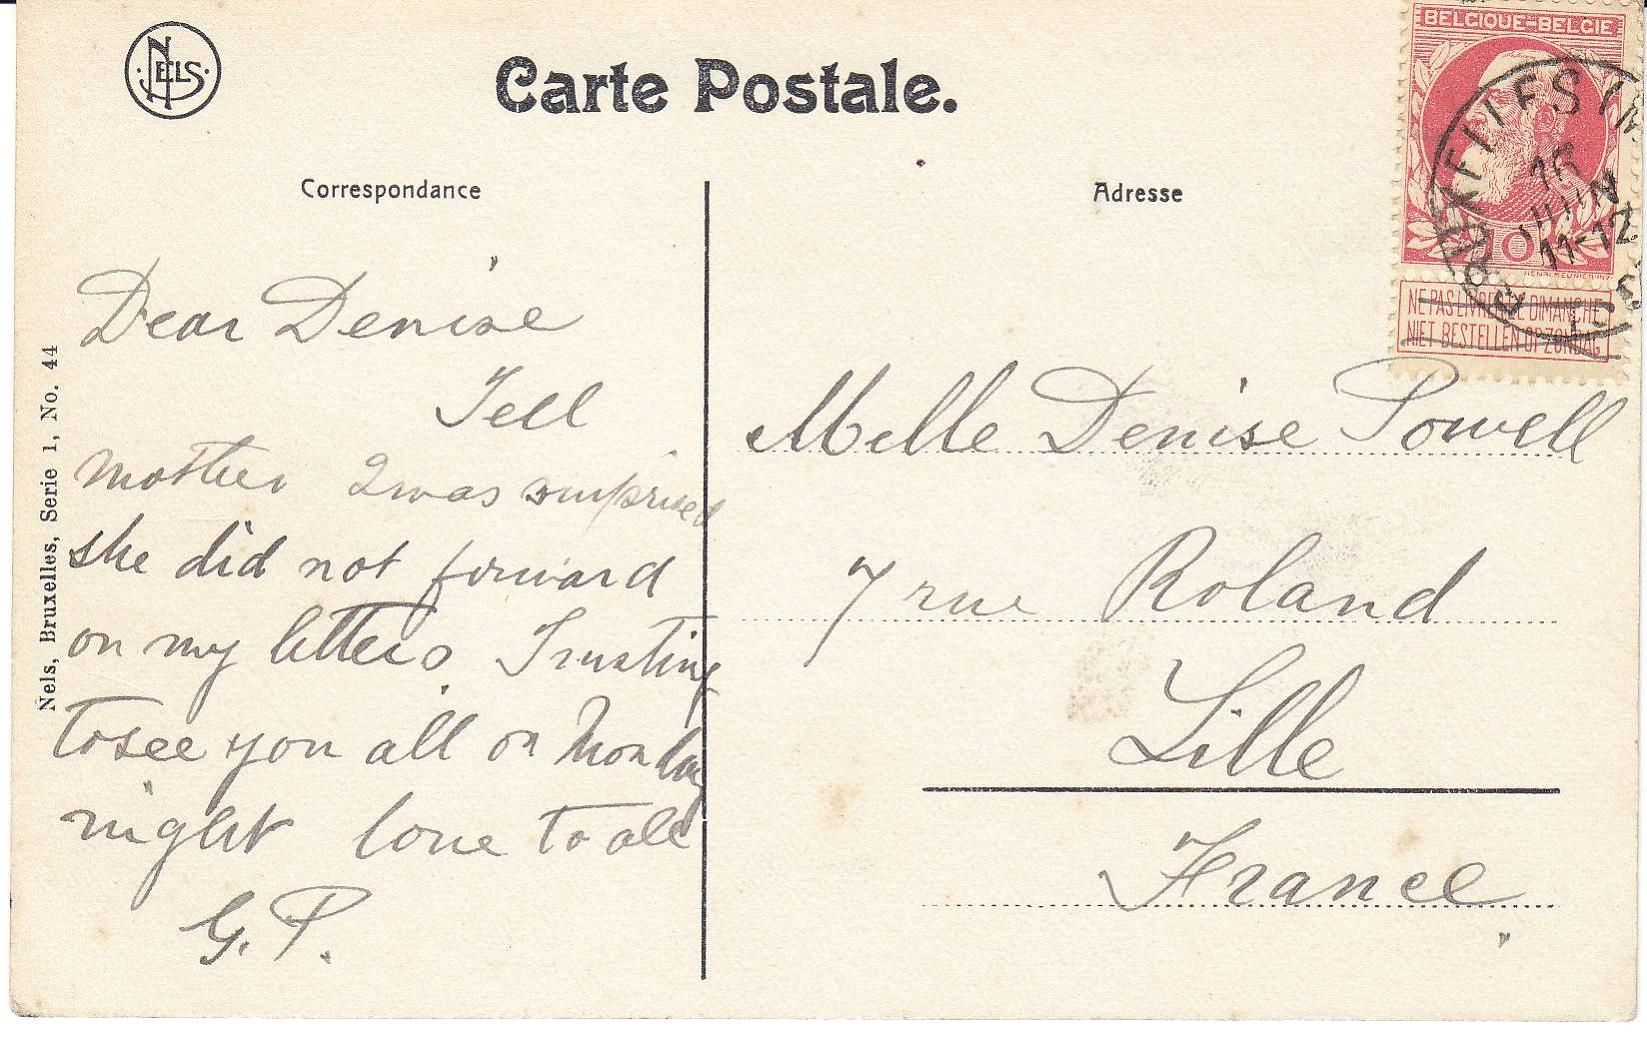 NELS
Carte Postale.
BELGIQUE-BELGIE
Correspondance
Adresse
10
NE PAS LIVRER LE DIMANCHE
NIET BESTELLEN OP ZONDAG
BRUXELLES
16
JUIN
11-12
Dear Denise
Tell
mother I was surprised
she did not forward
on my letters. Trusting
to see you all on Monday
night love to all
G. P.
Melle Denise Powell
7 rue Roland
Lille
France
Nels, Bruxelles, Serie 1, No. 44